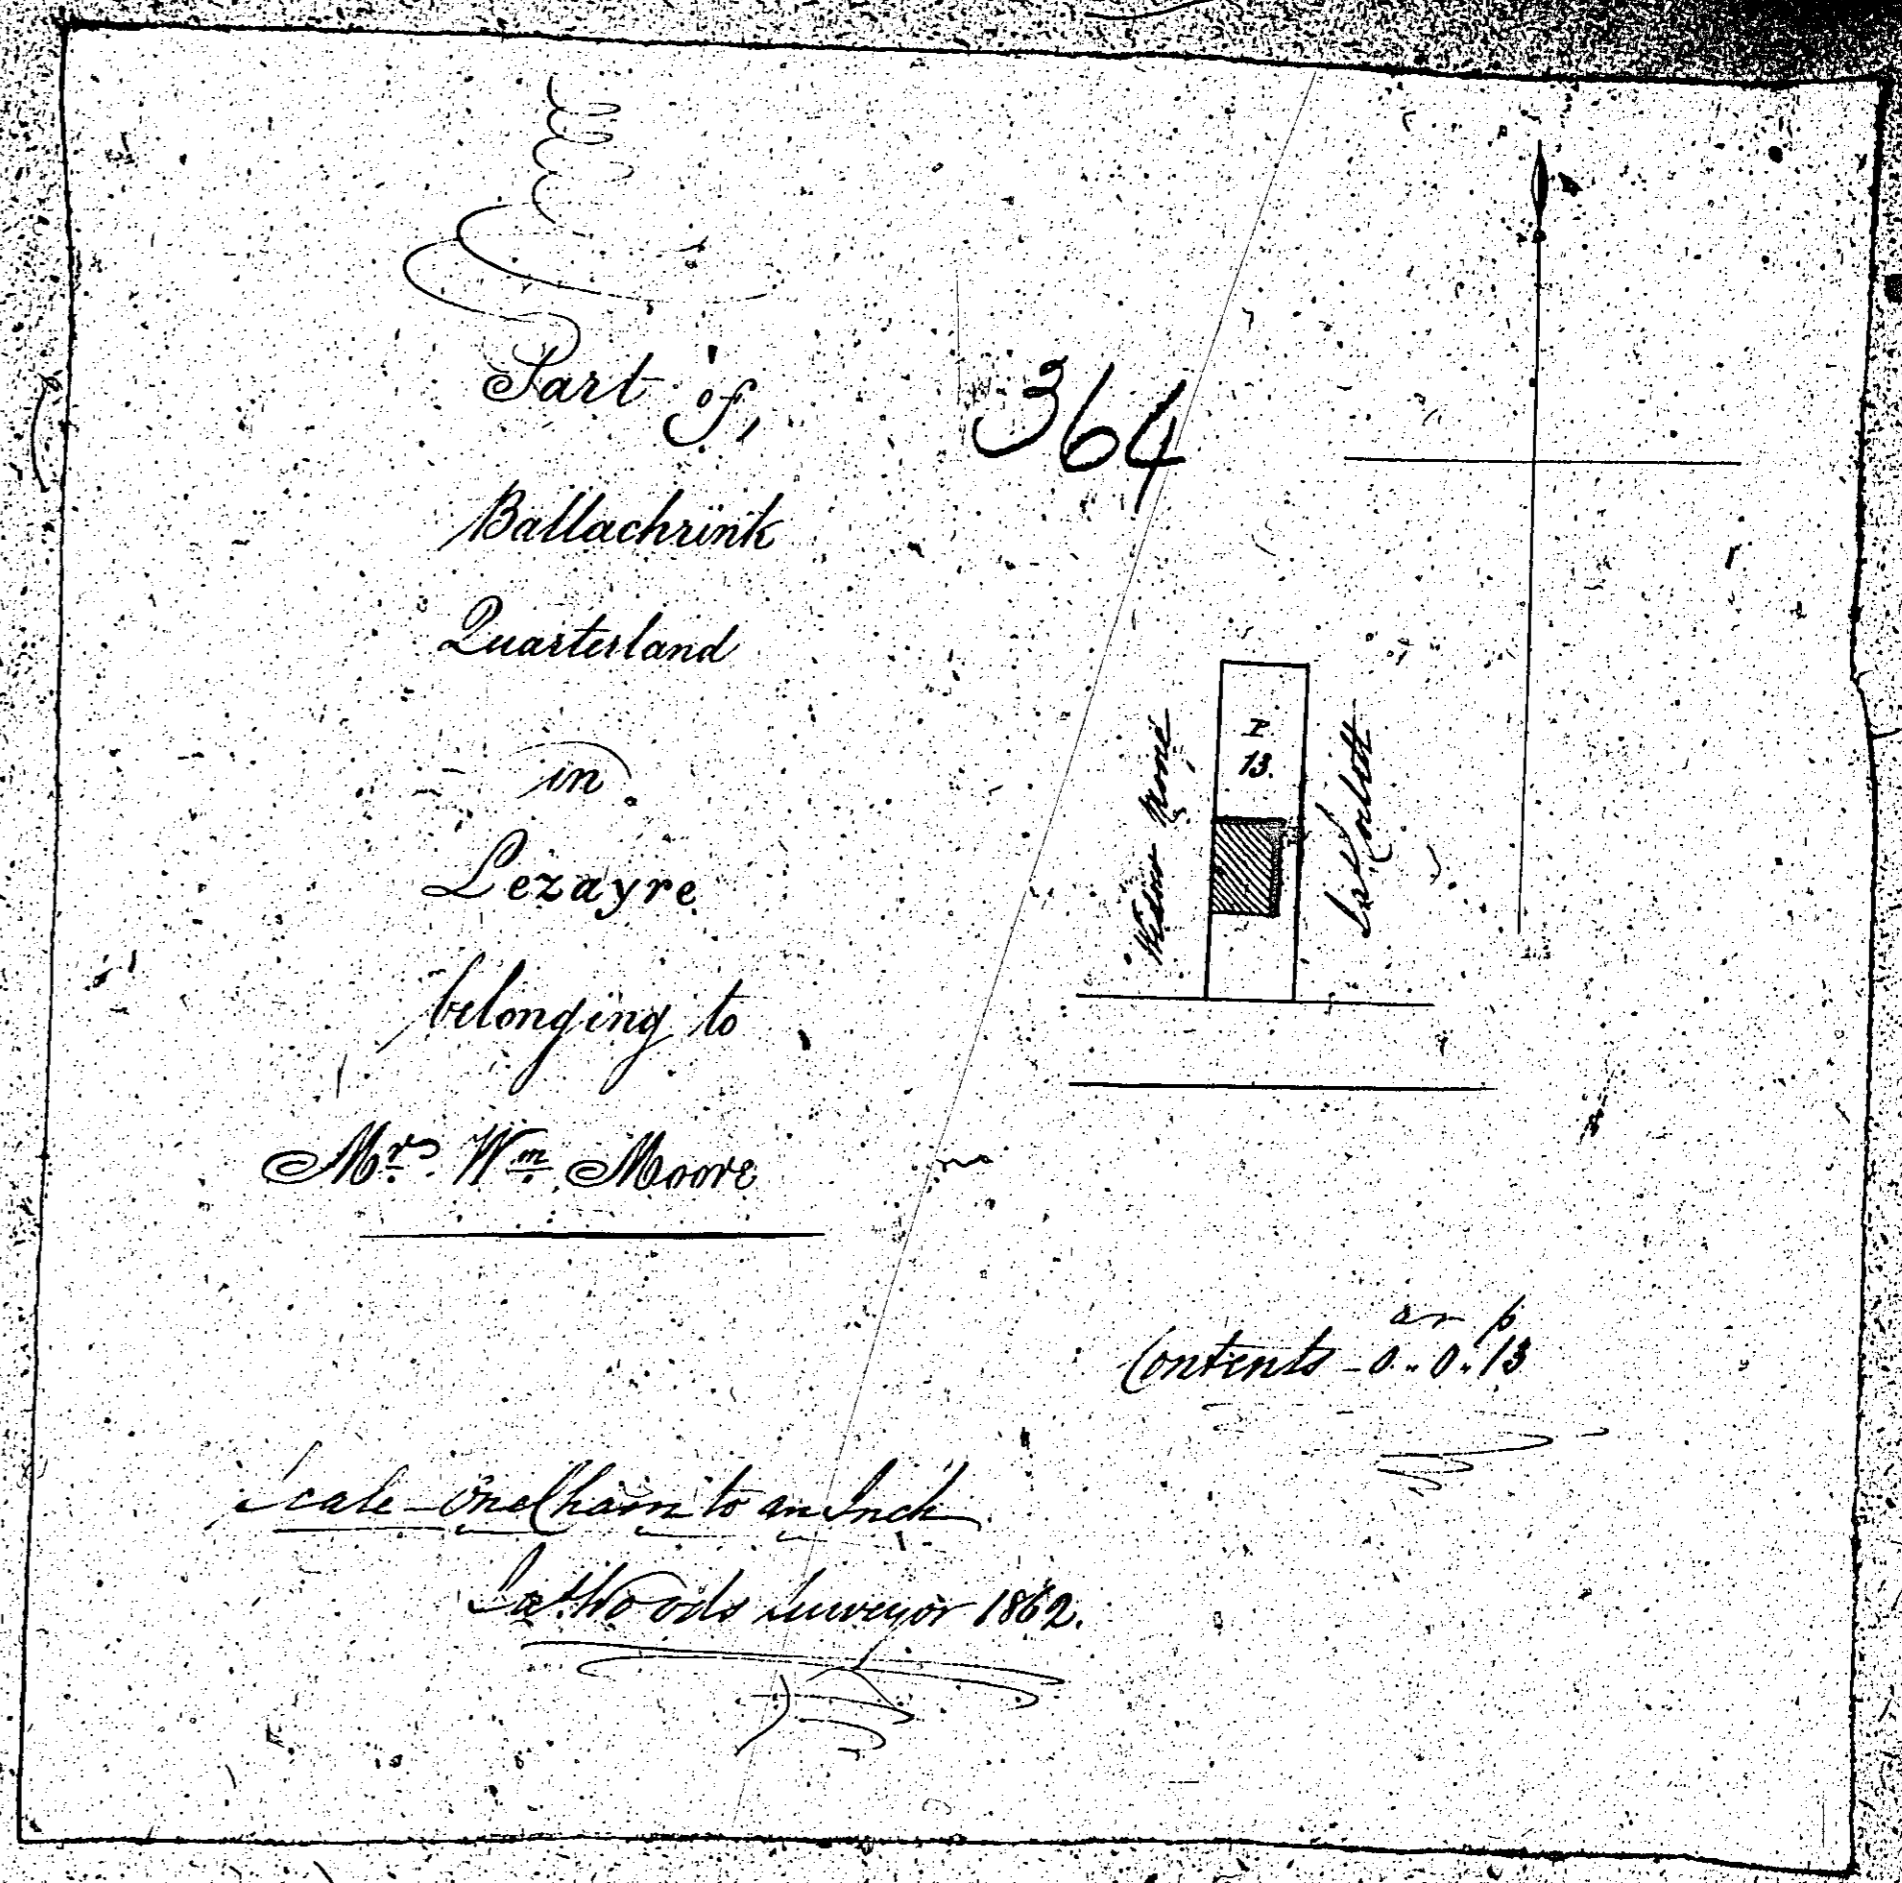 Part of,
364
Ballachrink
Quarterland
in
Lezayre
belonging to
Mrs. Wm Moore
P
13.
Widow
Corlett
a r p
Contents - 0.. 0.. 13
Scale - One Chain to an Inch
Woods Surveyor 1862.